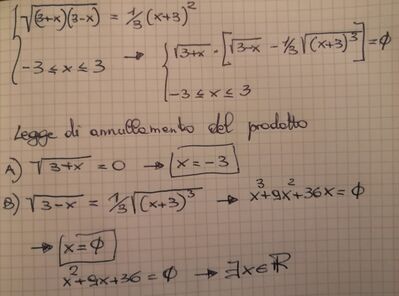 { √(3+x)(3-x) = 1/3 (x+3)²
{ -3 ≤ x ≤ 3 → { √3+x · [√3-x - 1/3 √(x+3)³] = φ
{ -3 ≤ x ≤ 3
Legge di annullamento del prodotto
A) √3+x = 0 → x = -3
B) √3-x = 1/3 √(x+3)³ → x³+9x²+36x = φ
→ x = φ
x²+9x+36 = φ → ∃x∈ℝ